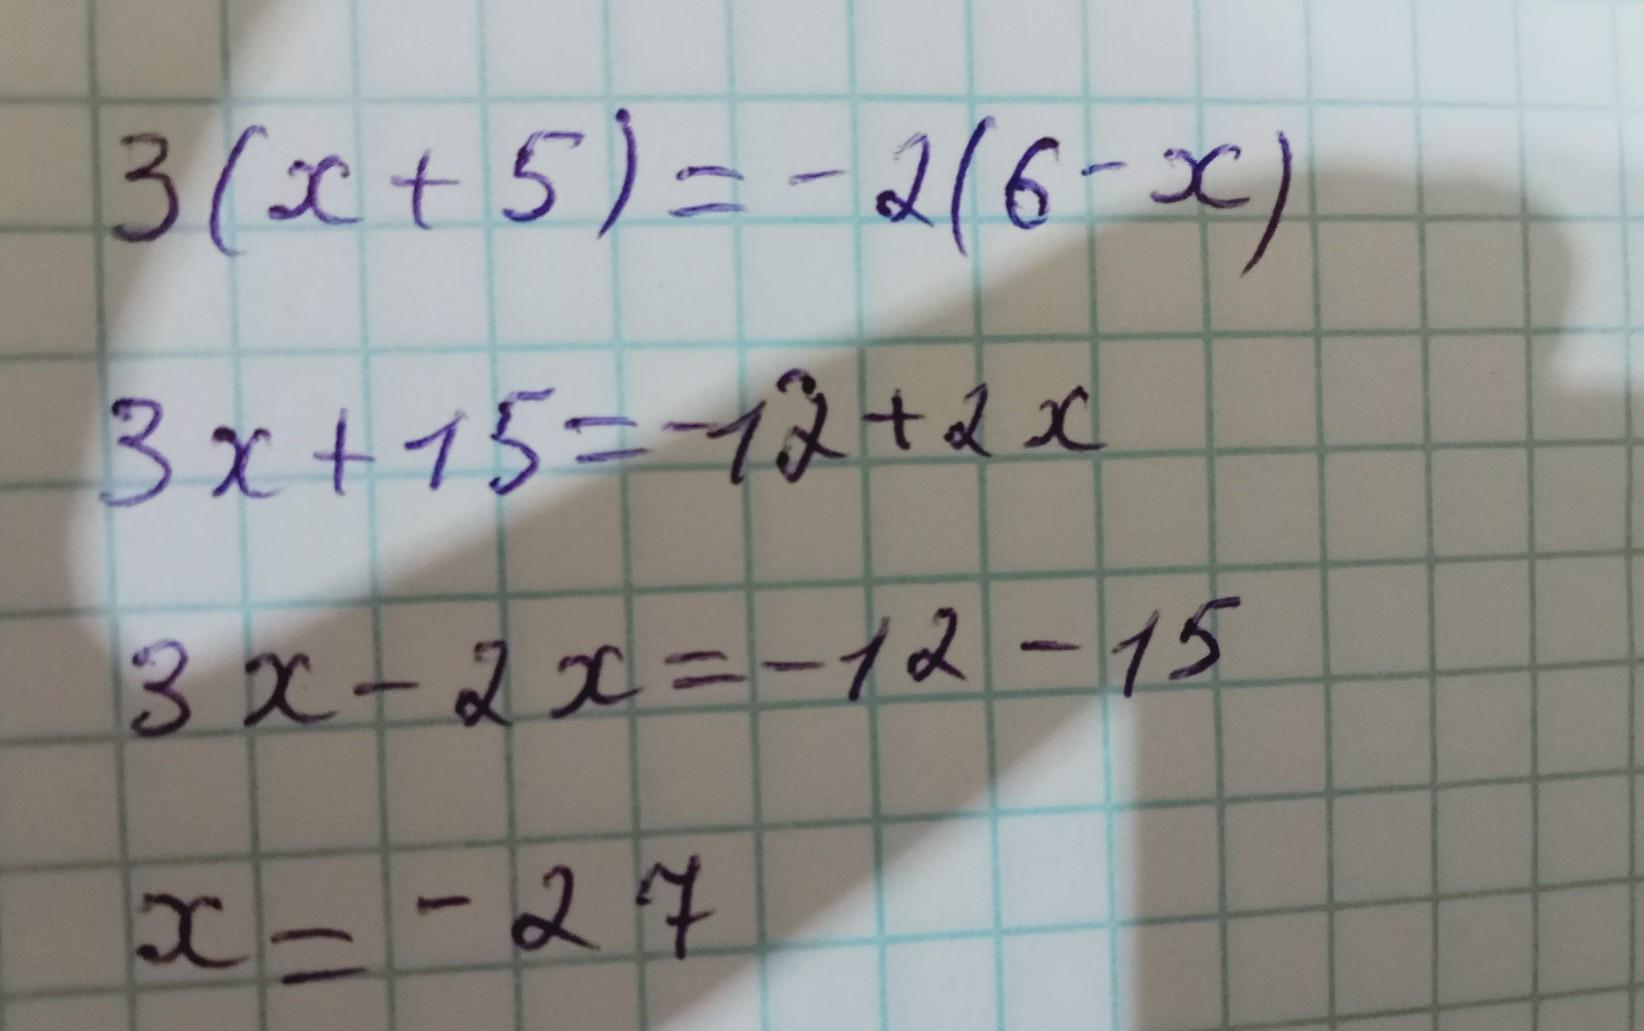 3(x+5)=-2(6-x)
3x+15=-12+2x
3x-2x=-12-15
x=-27